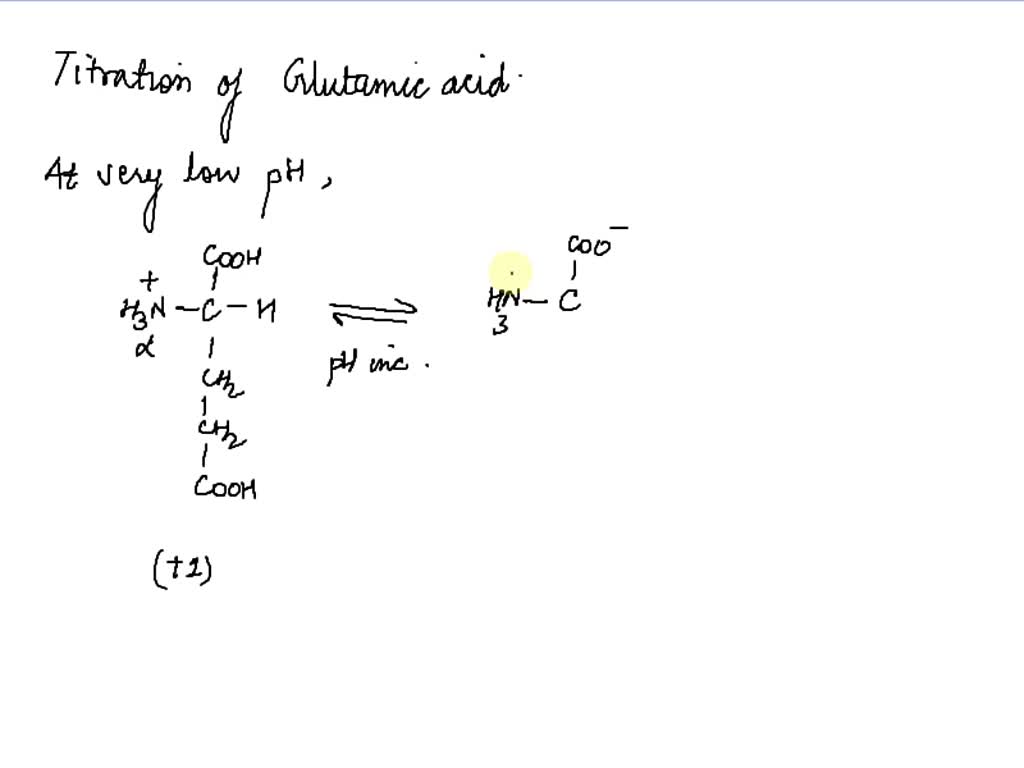 Titration of Glutamic acid.
At very low pH,
COOH
+
H3N - C - H
α
CH2
CH2
COOH
(+1)
pH inc.
COO-
HN - C
3